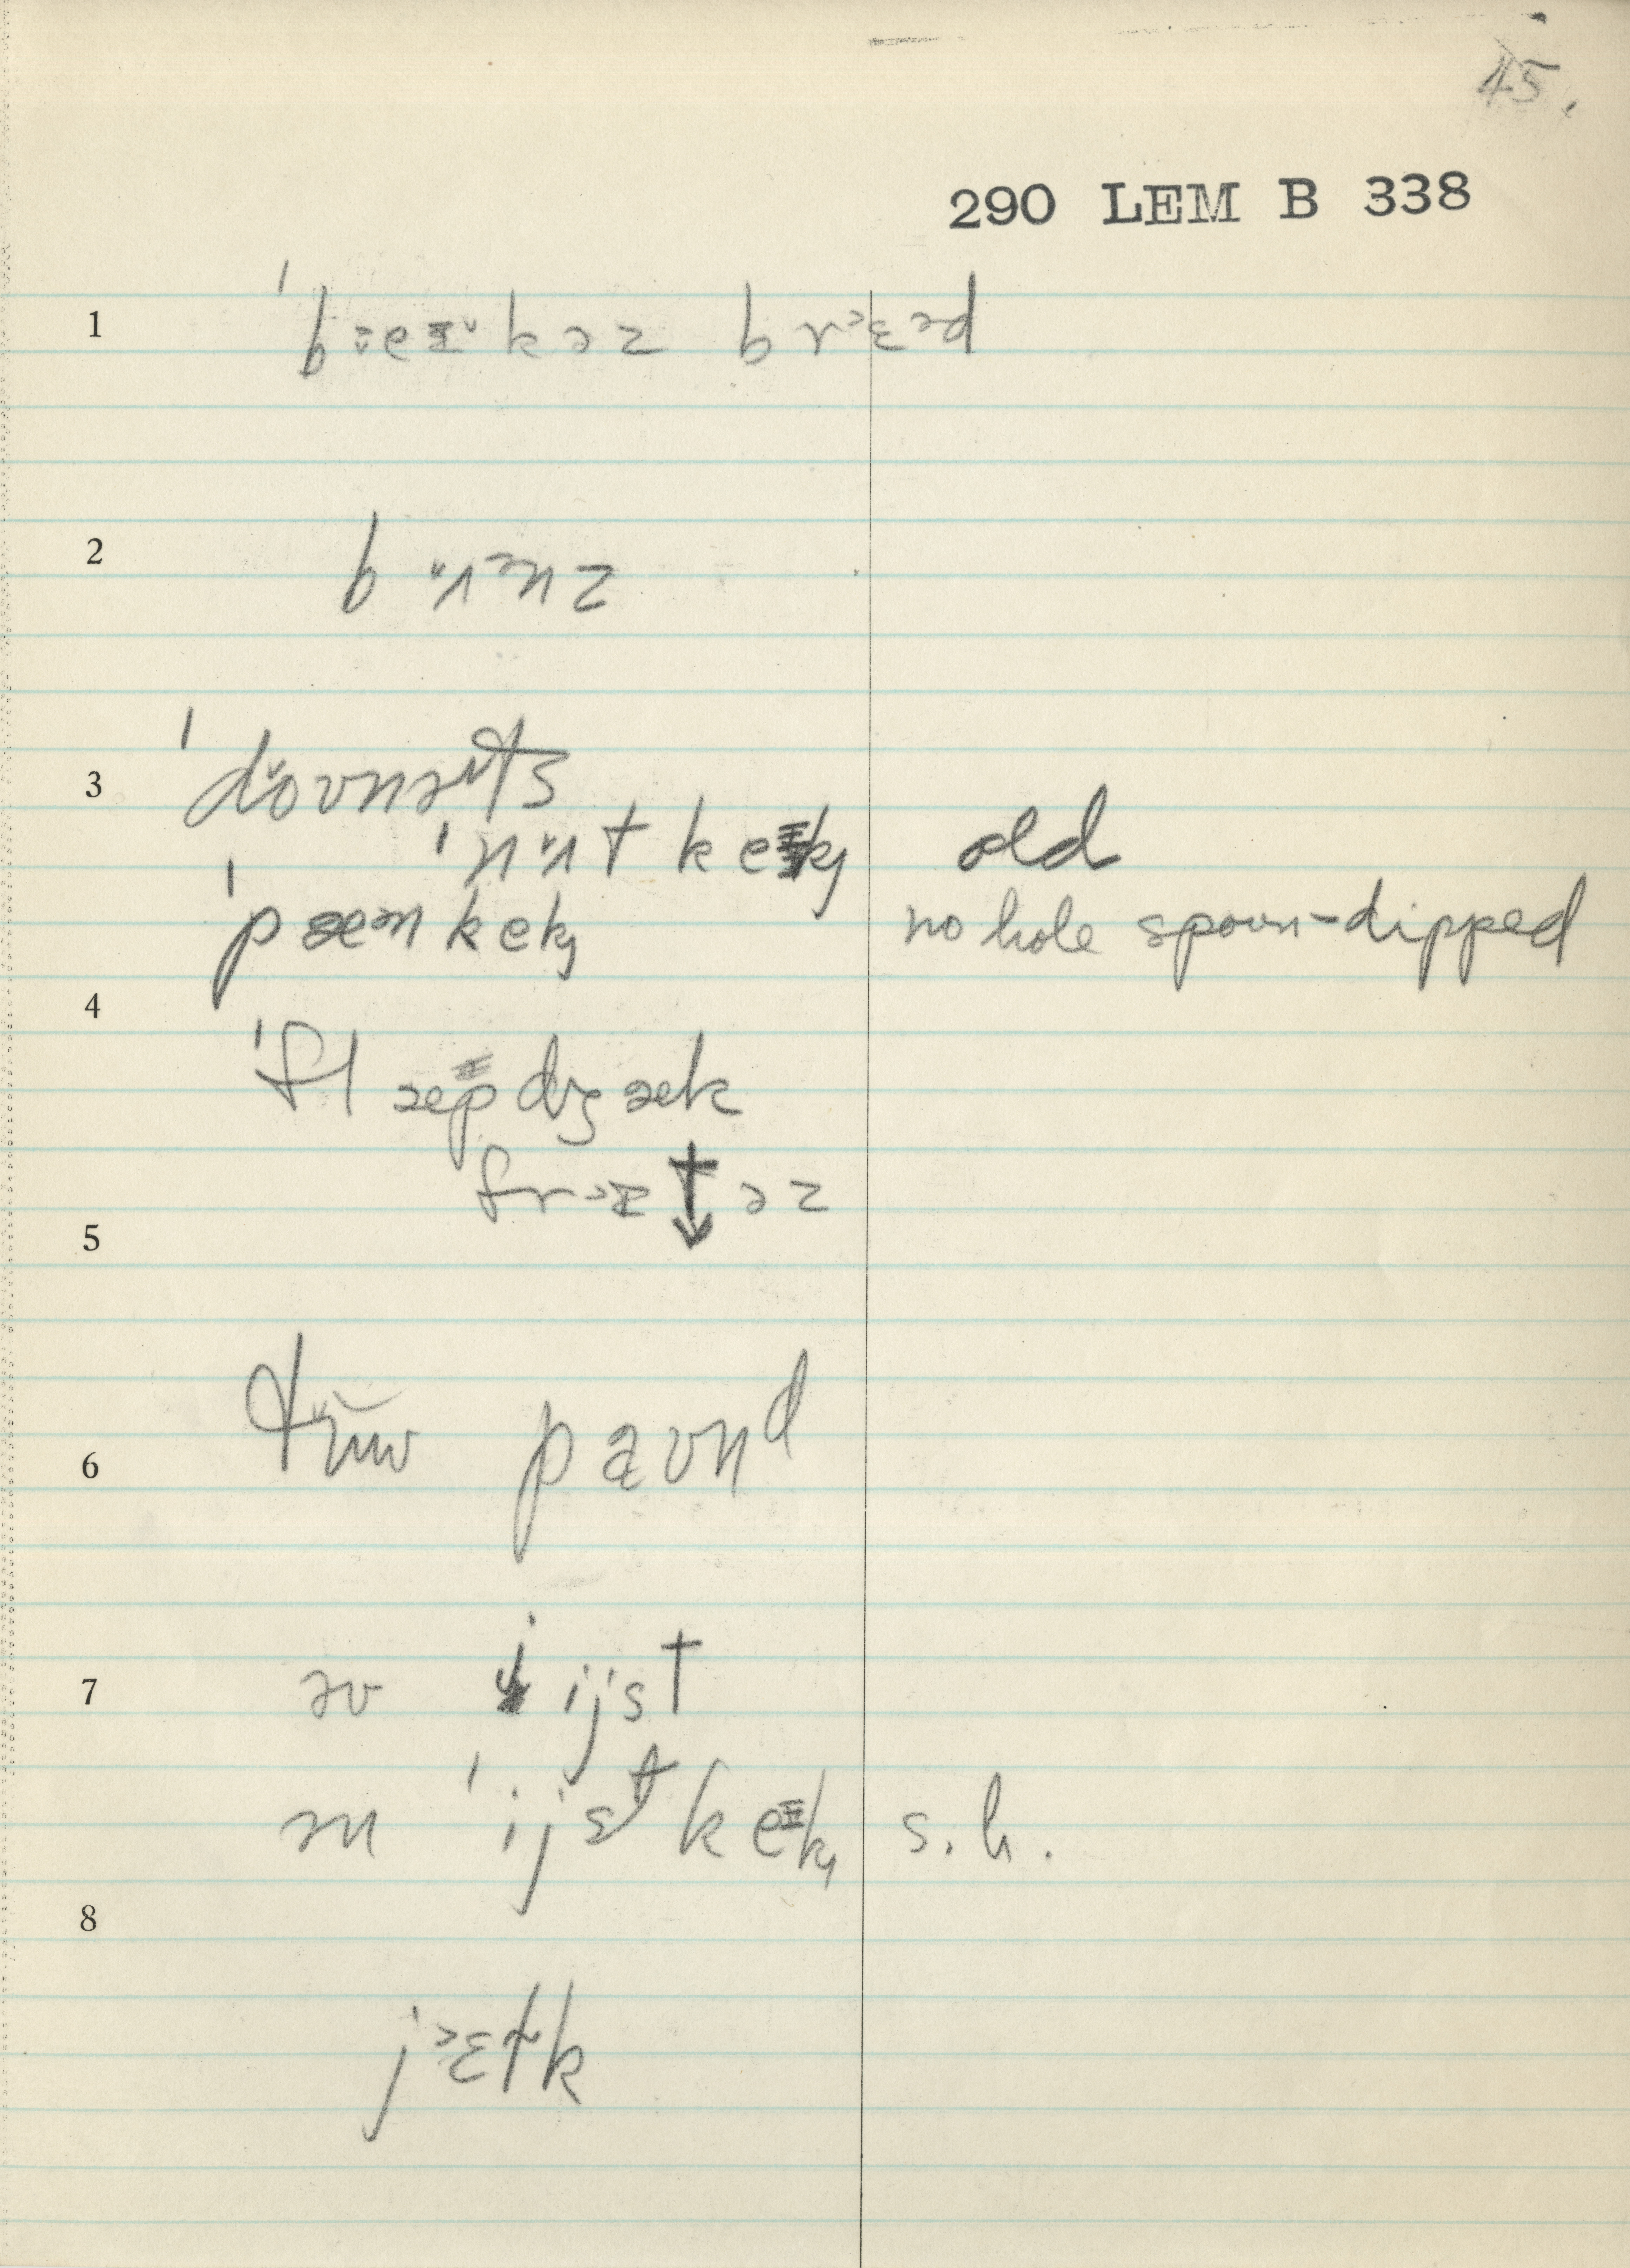 45.
290 LEM B 338
1 ˈbːeɪ˘kəz brɛəd
2 bʌnz
3 ˈdoʊnəts
ˈnʌt keɪk old
ˈpæn kek no hole spoon-dipped
4
ˈflæpdʒæk
frɪt↓əz
5
6 tʉw paʊnd
7 əv jijst
ən ˈijst keɪk s.h.
8
jɛək